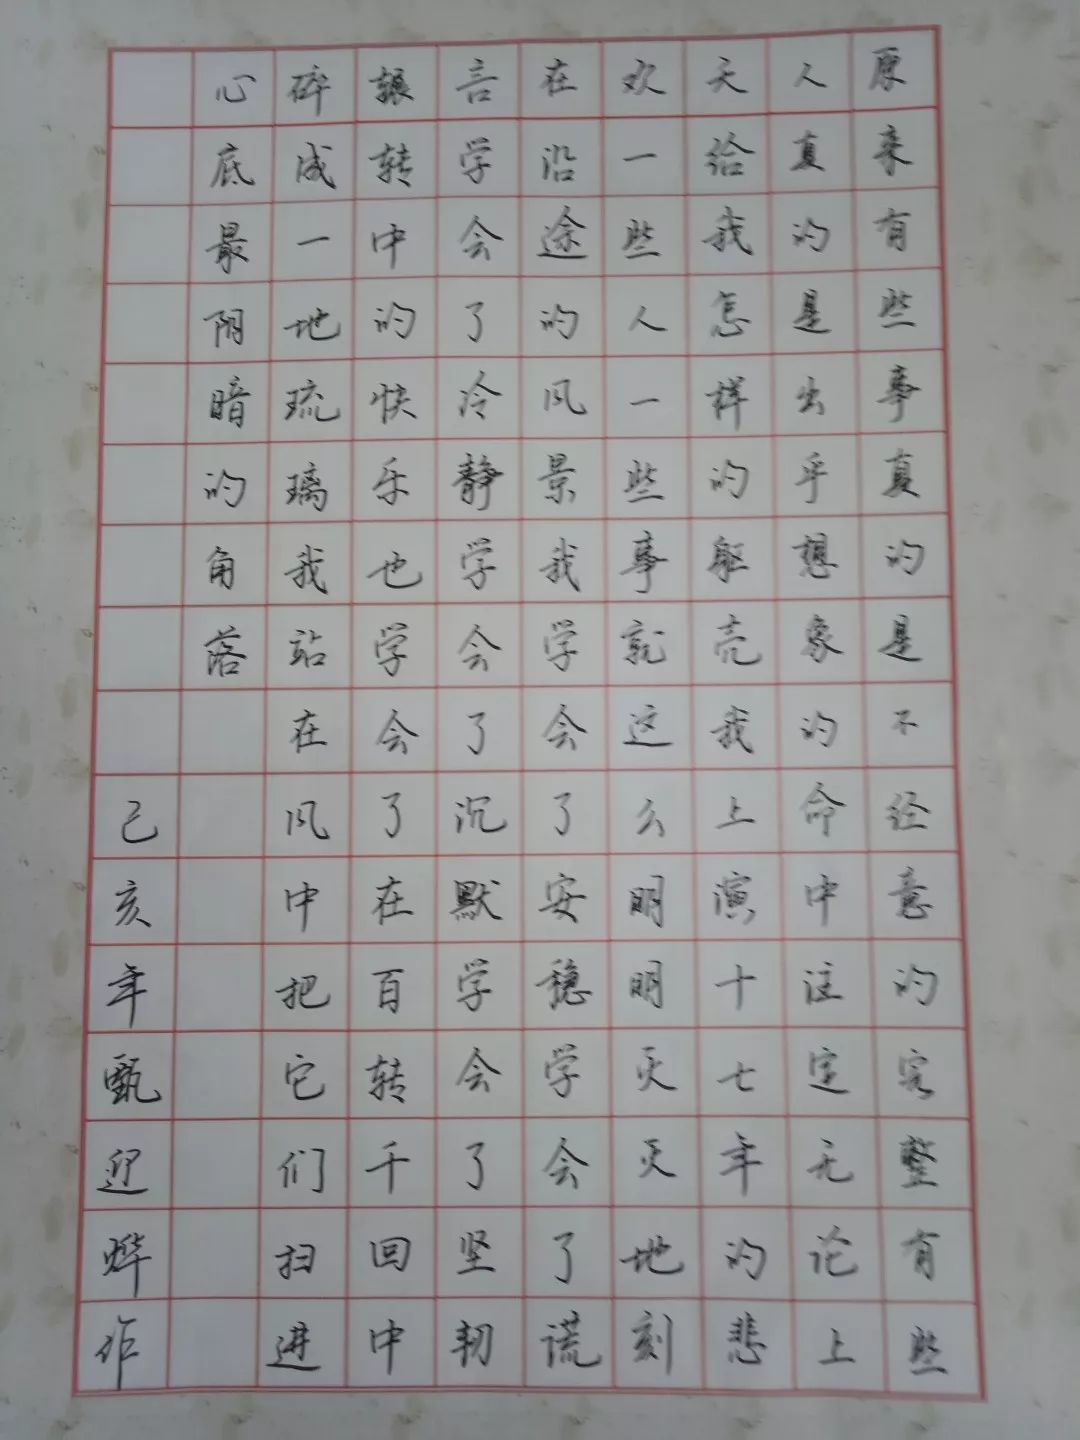 原来有些事真的是不经意的完整有些
人真的是出乎想象的命中注定无论上
天给我怎样的躯壳我上演十七年的悲
欢一些人一些事就这么明明灭灭地刻
在沿途的风景我学会了安稳学会了谎
言学会了冷静学会了沉默学会了坚韧
辗转中的快乐也学会了在百转千回中
碎成一地琉璃我站在风中把它们扫进
心底最阴暗的角落
己亥年甄迎烨作